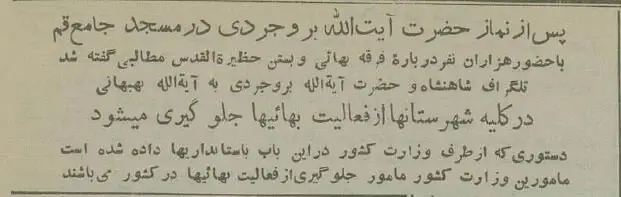 پس از نماز حضرت آیت‌الله بروجردی در مسجد جامع قم
با حضور هزاران نفر درباره فرقه بهائی و بستن حظیرة‌القدس مطالبی گفته شد
تلگراف شاهنشاه و حضرت آیةالله بروجردی به آیةالله بهبهانی
در کلیه شهرستانها از فعالیت بهائیها جلو گیری میشود
دستوری که از طرف وزارت کشور در این باب باستانداریها داده شده است
مامورین وزارت کشور مامور جلوگیری از فعالیت بهائیها در کشور می‌باشند